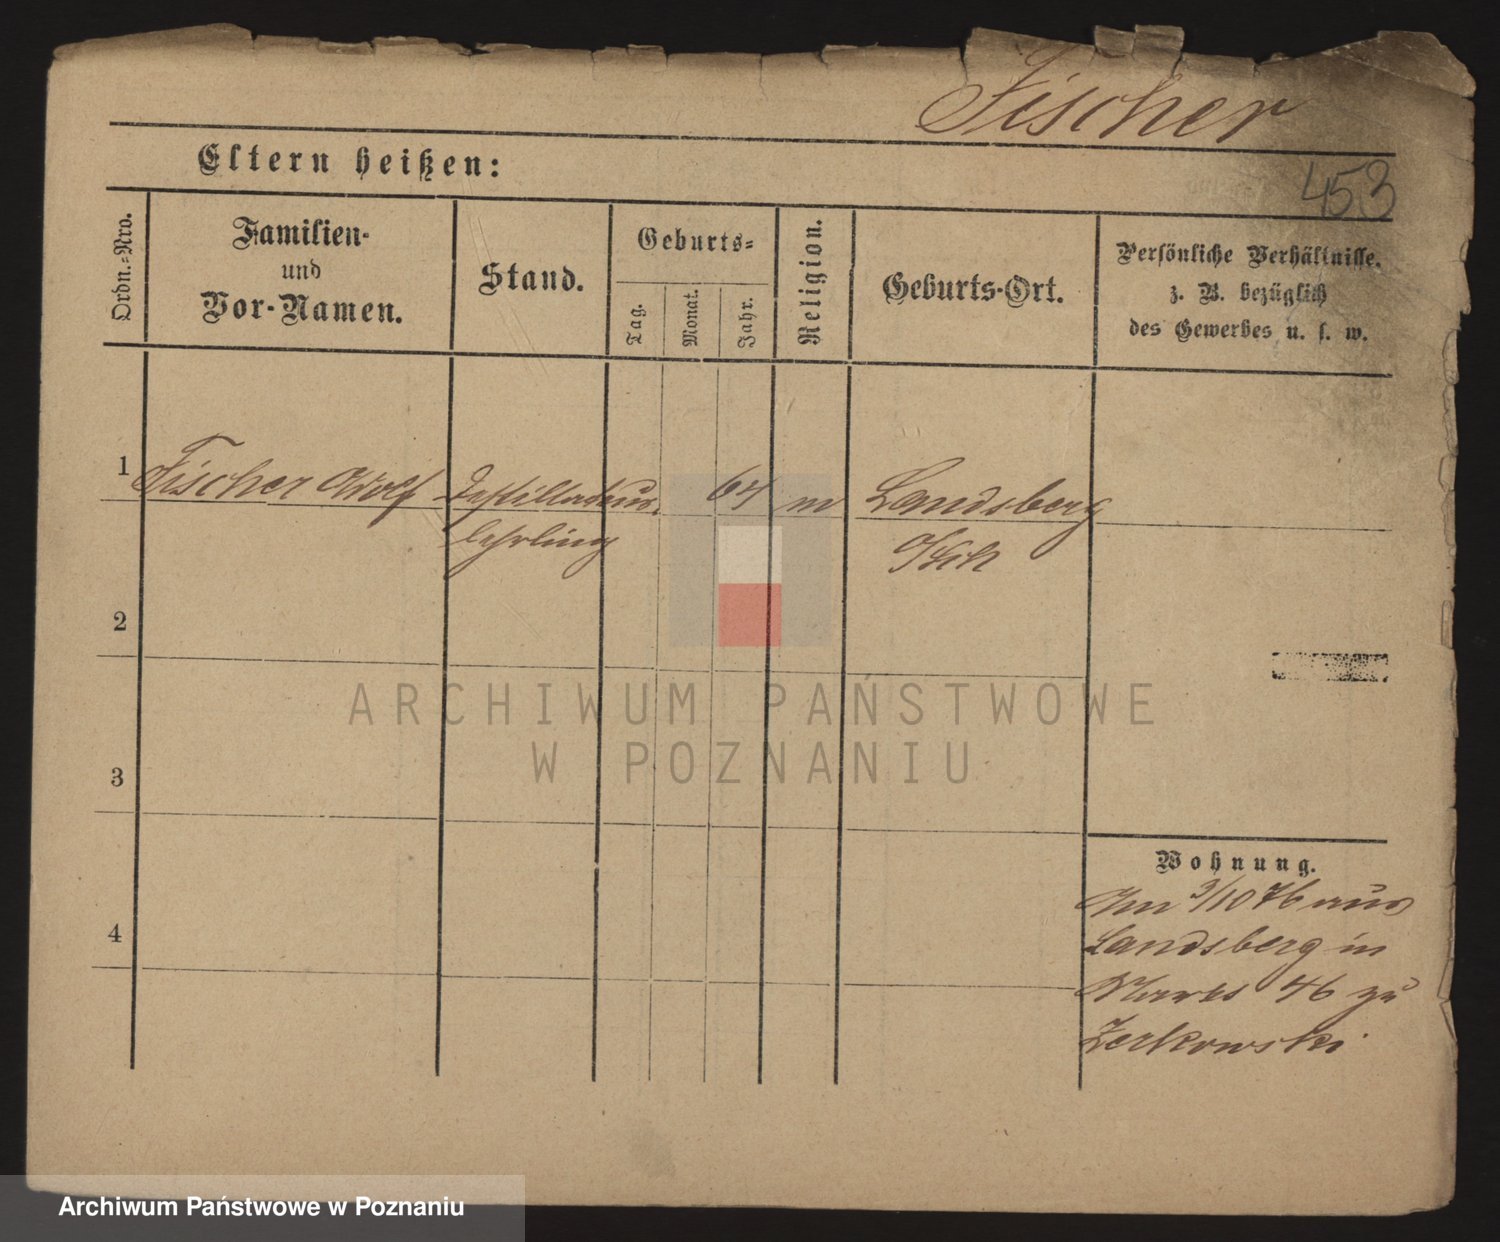 Fischer
453
Eltern heißen:
Ordn.-Nro.
Familien-
und
Vor-Namen.
Stand.
Geburts-
Tag.
Monat.
Jahr.
Religion.
Geburts-Ort.
Persönliche Verhältnisse.
z. B. bezüglich
des Gewerbes u. s. w.
1 Fischer Adolf Destillateur 64 m Landsberg
lehrling
2
3
4
Wohnung.
3/10 76 aus
Landsberg in
Markt 46 zu
Zerkowski
ARCHIWUM PAŃSTWOWE
W POZNANIU
Archiwum Państwowe w Poznaniu